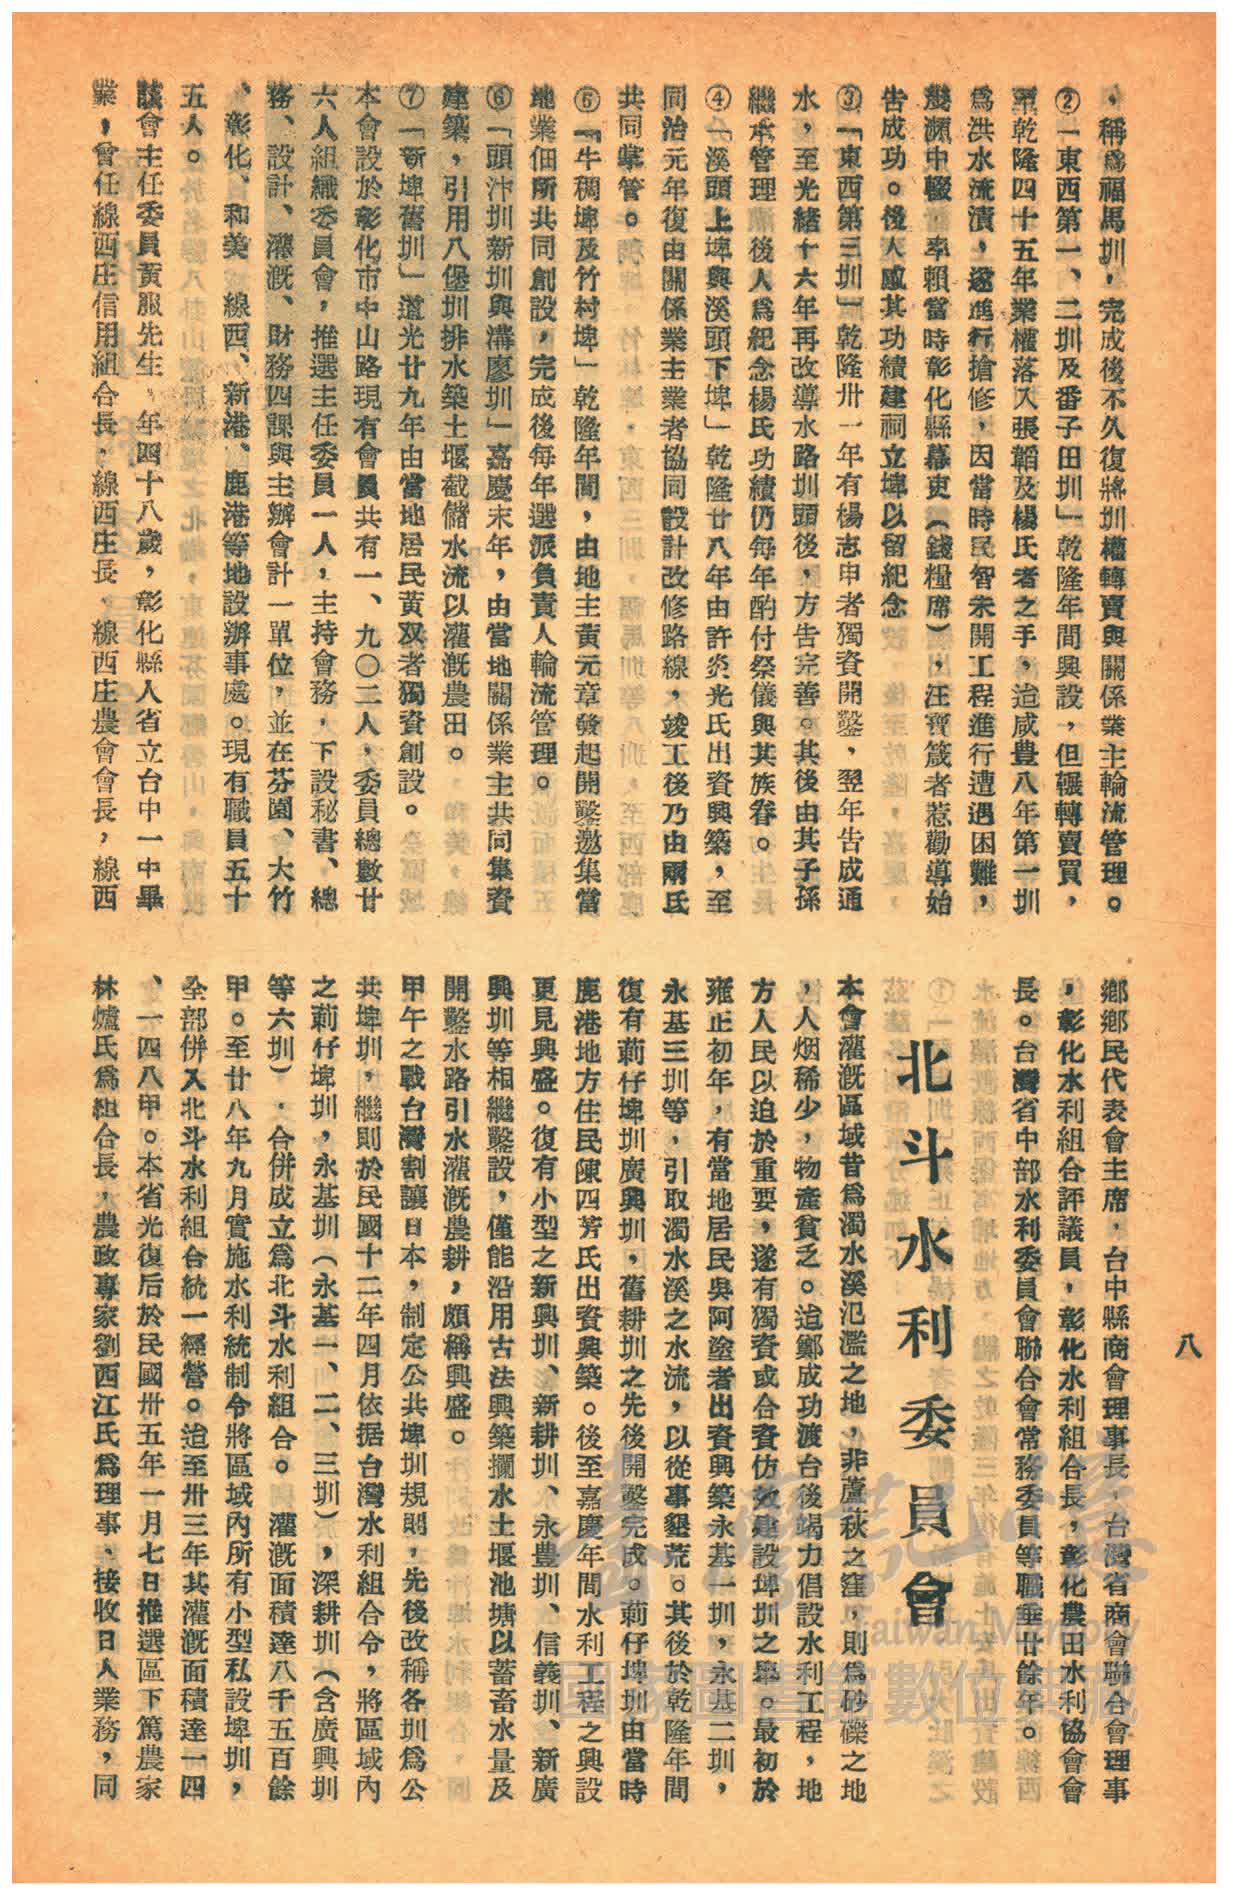 ，稱爲福馬圳，完成後不久復將圳權轉賣與關係業主輪流管理。
②「東西第一、二圳及番子田圳」乾隆年間興設，但輾轉賣買，
至乾隆四十五年業權落入張韜及楊氏者之手，迨咸豊八年第一圳
爲洪水流潰，遂進行搶修，因當時民智未開工程進行遭遇困難，
幾瀕中輟，率賴當時彰化縣幕吏（錢糧席），汪寶箴者惹勸導始
告成功。後人感其功績建祠立埤以留紀念
③「東西第三圳」乾隆卅一年有楊志申者獨資開鑿，翌年告成通
水，至光緒十六年再改導水路圳頭後，方告完善。其後由其子孫
繼承管理　後人爲紀念楊氏功績仍每年酌付祭儀與其族眷。
④「溪頭上埤與溪頭下埤」乾隆廿八年由許炎光氏出資興築，至
同治元年復由關係業主業者協同設計改修路線，竣工後乃由兩氏
共同掌管。
⑤「牛稠埤及竹村埤」乾隆年間，由地主黃元章發起開鑿邀集當
地業佃所共同創設，完成後每年選派負責人輪流管理。
⑥「頭汴圳新圳與溝廖圳」嘉慶末年，由當地關係業主共同集資
建築，引用八堡圳排水築土堰截儲水流以灌漑農田。
⑦「新埤舊圳」道光廿九年由當地居民黃双者獨資創設。
本會設於彰化市中山路現有會員共有一、九〇二人，委員總數廿
六人組織委員會，推選主任委員一人，主持會務，下設秘書、總
務、設計、灌漑、財務四課與主辦會計一單位，並在芬園、大竹
、彰化、和美、線西、新港、鹿港等地設辦事處。現有職員五十
五人。
該會主任委員黃服先生，年四十八歲，彰化縣人省立台中一中畢
業，曾任線西庄信用組合長，線西庄長、線西庄農會會長，線西
鄉鄉民代表會主席，台中縣商會理事長，台灣省商會聯合會理事
，彰化水利組合評議員，彰化水利組合長，彰化農田水利協會會
長。台灣省中部水利委員會聯合會常務委員等職垂廿餘年。
北斗水利委員會
本會灌漑區域昔爲濁水溪氾濫之地，非蘆萩之窪，則爲砂礫之地
，人烟稀少，物產貧乏。迨鄭成功渡台後竭力倡設水利工程，地
方人民以迫於重要，遂有獨資或合資仿效建設埤圳之舉。最初於
雍正初年，有當地居民吳阿塗者出資興築永基一圳，永基二圳，
永基三圳等，引取濁水溪之水流，以從事墾荒。其後於乾隆年間
復有莿仔埤圳廣興圳，舊耕圳之先後開鑿完成。莿仔埤圳由當時
鹿港地方住民陳四芳氏出資興築。後至嘉慶年間水利工程之興設
更見興盛。復有小型之新興圳、新耕圳、永豊圳、信義圳、新廣
興圳等相繼鑿設，僅能沿用古法興築攔水土堰池塘以蓄畜水量及
開鑿水路引水灌漑農耕，頗稱興盛。
甲午之戰台灣割讓日本，制定公共埤圳規則，先後改稱各圳爲公
共埤圳，繼則於民國十二年四月依据台灣水利組合令，將區域內
之莿仔埤圳，永基圳（永基一、二、三圳），深耕圳（含廣興圳
等六圳），合併成立爲北斗水利組合。灌漑面積達八千五百餘
甲。至廿八年九月實施水利統制令將區域內所有小型私設埤圳，
全部併入北斗水利組合統一經營。迨至卅三年其灌漑面積達一四
、一四八甲。本省光復后於民國卅五年一月七日推選區下篤農家
林爐氏爲組合長，農政專家劉西江氏爲理事、接收日人業務，同
八
Taiwan Memory
國家圖書館數位典藏